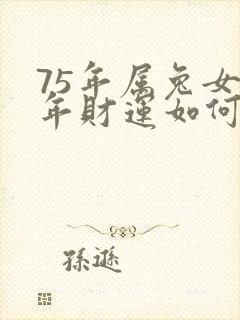 75年属兔女
年财运如何
孫遜